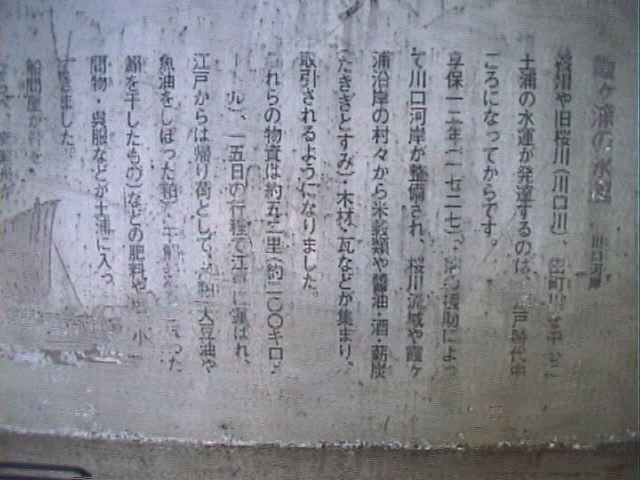 霞ヶ浦の水運
川口河岸
桜川や旧桜川(川口川)、
土浦の水運が発達するのは、江戸時代中
ごろになってからです。
享保一二年(一七二七)、 援助によっ
て川口河岸が整備され、桜川流域や霞ヶ
浦沿岸の村々から米穀類や醤油・酒・薪炭
(たきぎとすみ)・木材・瓦などが集まり、
取引されるようになりました。
これらの物資は約五二里(約二〇〇キロメ
ートル)、一五日の行程で江戸に運ばれ、
江戸からは帰り荷として、 (大豆油や
魚油をしぼった粕)・干鰯 った
鰯を干したもの)などの肥料や塩、小
間物・呉服などが土浦に入っ
てきました。
船問屋が